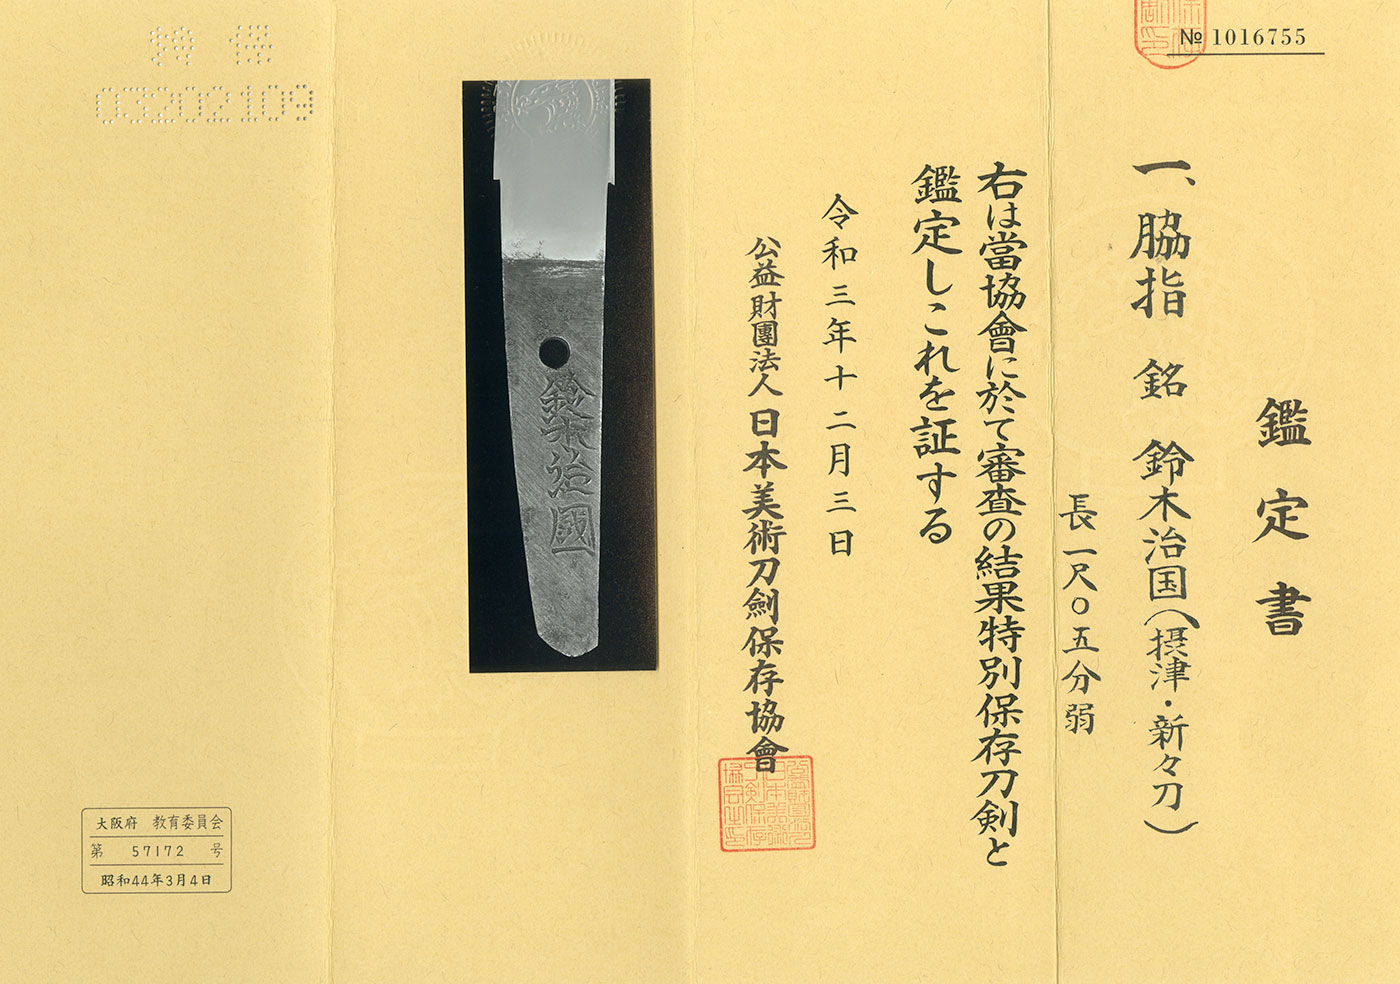 № 1016755
鑑定書
一、脇指 銘 鈴木治国(摂津・新々刀)
長一尺〇五分弱
右は當協會に於て審査の結果特別保存刀剣と
鑑定しこれを証する
令和三年十二月三日
公益財團法人 日本美術刀劍保存協會
鈴木治國
03202109
大阪府 教育委員会
第 57172 号
昭和44年3月4日